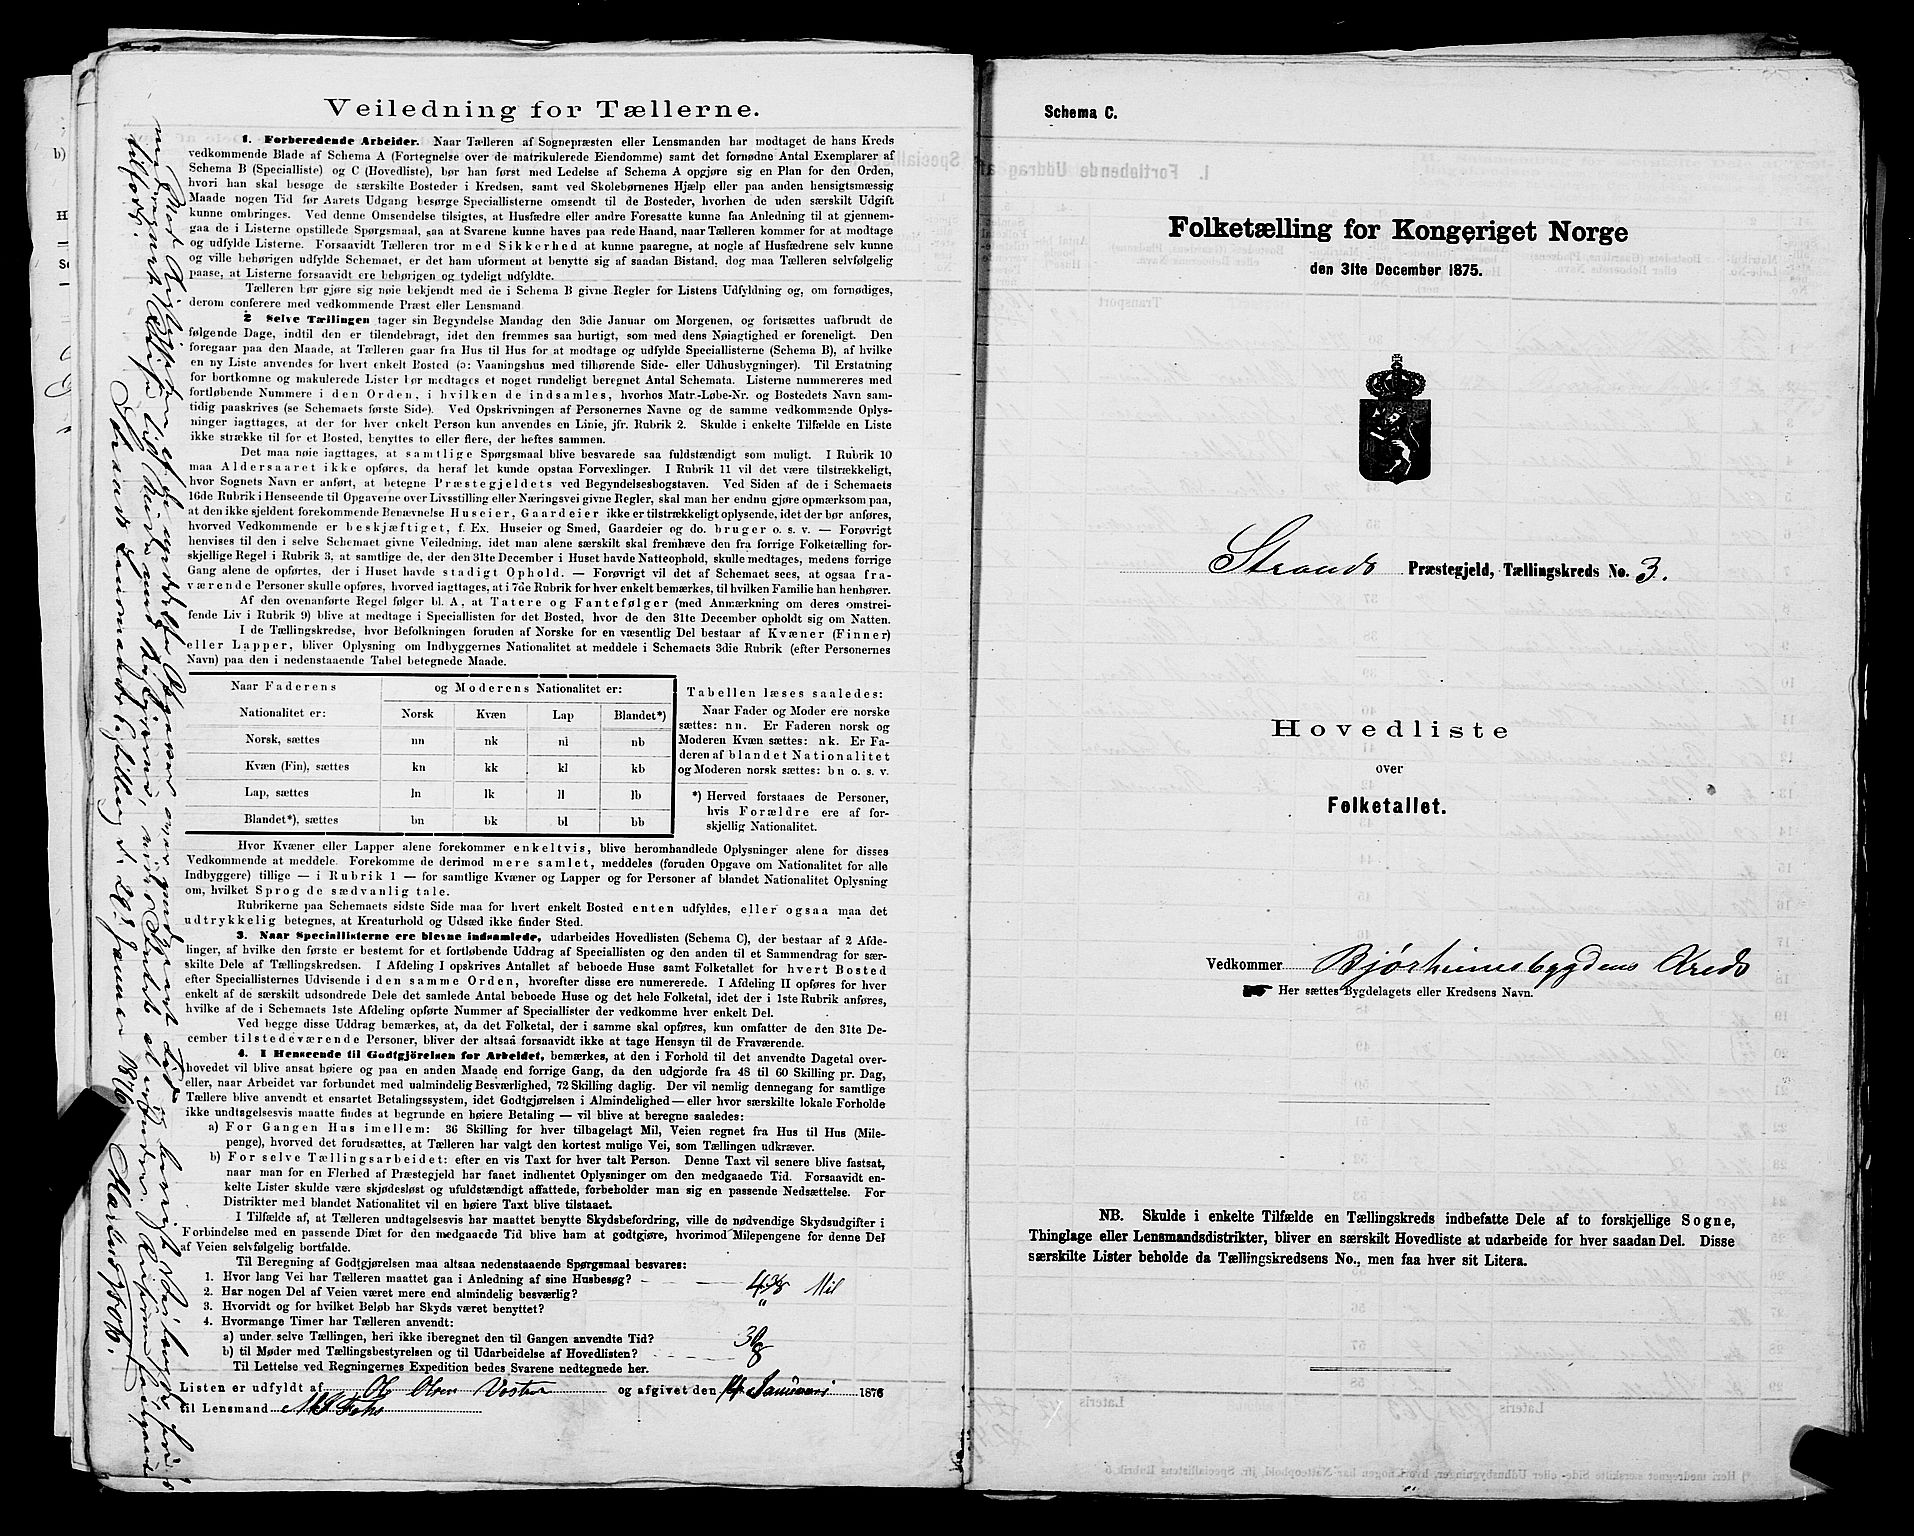 Veiledning for Tællerne.
1. Forberedende Arbeider. Naar Tælleren af Sognepræsten eller Lensmanden har modtaget de hans Kreds
vedkommende Blade af Schema A (Fortegnelse over de matrikulerede Eiendomme) samt det fornødne Antal Exemplarer af
Schema B (Specialliste) og C (Hovedliste), bør han først med Ledelse af Schema A opgjøre sig en Plan for den Orden,
hvori han skal besøge de særskilte Bosteder i Kredsen, samt ved Skolebørnenes Hjælp eller paa anden hensigtsmæssig
Maade nogen Tid før Aarets Udgang besørge Speciallisterne omsendt til de Bosteder, hvorhen de uden særskilt Udgift
kunne ombringes. Ved denne Omsendelse tilsigtes, at Husfædre eller andre Foresatte kunne faa Anledning til at gjennem-
gaa de i Listerne opstillede Spørgsmaal, saa at Svarene kunne haves paa rede Haand, naar Tælleren kommer for at modtage
og udfylde Listerne. Forsaavidt Tælleren tror med Sikkerhed at kunne paaregne, at nogle af Husfædrene selv kunne
og ville behørigen udfylde Schemaet, er det ham uforment at benytte sig af saadan Bistand, dog maa Tælleren selvfølgelig
paase, at Listerne forsaavidt ere behørigen og tydeligt udfyldte.
Tælleren bør gjøre sig nøie bekjendt med de i Schema B givne Regler for Listens Udfyldning og, om fornødiges,
derom conferere med vedkommende Præst eller Lensmand.
2 Selve Tællingen tager sin Begyndelse Mandag den 3die Januar om Morgenen, og fortsættes uafbrudt de
følgende Dage, indtil den er tilendebragt, idet den fremmes saa hurtigt, som med dens Nøiagtighed er foreneligt. Den
foregaar paa den Maade, at Tælleren gaar fra Hus til Hus for at modtage og udfylde Speciallisterne (Schema B), af hvilke
en ny Liste anvendes for hvert enkelt Bosted (ɔ: Vaaningshus med tilhørende Side- eller Udhusbygninger). Til Erstatning
for bortkomne og makulerede Lister bør medtages et noget rundeligt beregnet Antal Schemata. Listerne nummereres med
fortløbende Nummere i den Orden, i hvilken de indsamles, hvorhos Matr.-Løbe-Nr. og Bostedets Navn sam-
tidig paaskrives (se Schemaets første Side). Ved Opskrivningen af Personernes Navne og de samme vedkommende Oplys-
ninger iagttages, at der for hver enkelt Person kun anvendes en Linie, jfr. Rubrik 2. Skulde i enkelte Tilfælde en Liste
ikke strække til for et Bosted, benyttes to eller flere, der heftes sammen.
Det maa nøie iagttages, at samtlige Spørgsmaal blive besvarede saa fuldstændigt som muligt. I Rubrik 10
maa Aldersaaret ikke opføres, da heraf let kunde opstaa Forvexlinger. I Rubrik 11 vil det være tilstrækkeligt,
hvor Sognets Navn er anført, at betegne Præstegjeldets ved Begyndelsesbogstaven. Ved Siden af de i Schemaets
16de Rubrik i Henseende til Opgaverne over Livsstilling eller Næringsvei givne Regler, skal man her endnu gjøre opmærksom paa,
at den ikke sjeldent forekommende Benævnelse Huseier, Gaardeier ikke er tilstrækkeligt oplysende, idet der bør anføres,
hvorved Vedkommende er beskjæftiget, f. Ex. Huseier og Smed, Gaardeier og do. bruger o. s. v. — Forøvrigt
henvises til den i selve Schemaet givne Veiledning, idet man alene særskilt skal fremhæve den fra forrige Folketælling for-
skjellige Regel i Rubrik 3, at samtlige de, der den 31te December i Huset havde Natteophold, skulle medtages, medens forrige
Gang alene de opførtes, der i Huset havde stadigt Ophold. — Forøvrigt vil det af Schemaet sees, at ogsaa fra-
værende Personer skulle opføres, hvorved iagttages, at i 7de Rubrik for hver enkelt bemærkes, til hvilken Familie han henhører.
Af den ovenanførte Regel følger bl. A, at Tatere og Fantefølger (med Anmærkning om deres omstrei-
fende Liv i Rubrik 9) blive at medtage i Speciallisten for det Bosted, hvor de den 31te December opholdt sig om Natten.
I de Tællingskredse, hvor Befolkningen foruden af Norske for en væsentlig Del bestaar af Kvæner (Finner)
eller Lapper, bliver Oplysning om Indbyggernes Nationalitet at meddele i Schemaets 3die Rubrik (efter Personernes
Navn) paa den i nedenstaaende Tabel betegnede Maade.
Naar Faderens og Moderens Nationalitet er:
Nationalitet er: Norsk Kvæn Lap Blandet*)
Norsk, sættes nn nk nl nb
Kvæn (Fin), sættes kn kk kl kb
Lap, sættes ln lk ll lb
Blandet*), sættes bn bk bl bb
Tabellen læses saaledes:
Naar Fader og Moder ere norske
sættes: nn. Er Faderen norsk og
Moderen Kvæn sættes: nk. Er Fa-
deren af blandet Nationalitet
og Moderen norsk sættes: bn o. s. v.
*) Herved forstaaes de Personer,
hvis Forældre ere af for-
skjellig Nationalitet.
Hvor Kvæner eller Lapper alene forekommer enkeltvis, blive heromhandlede Oplysninger alene for disses
Vedkommende at meddele. Forekomme de derimod mere samlet, meddeles (foruden Opgave om Nationalitet for alle
Indbyggere) tillige — i Rubrik 1 — for samtlige Kvæner og Lapper og for Personer af blandet Nationalitet Oplysning
om, hvilket Sprog de sædvanlig tale.
Rubrikerne paa Schemaets sidste Side maa for hvert enkelt Bosted enten udfyldes, eller ogsaa maa det
udtrykkelig betegnes, at Kreaturhold og Udsæd ikke finder Sted.
3. Naar Speciallisterne ere blevne indsamlede, udarbeides Hovedlisten (Schema C), der bestaar af 2 Afde-
linger, af hvilke den første er bestemt for et fortløbende Uddrag af Speciallisten og den anden til et Sammendrag for sær-
skilte Dele af Tællingskredsen. I Afdeling I opskrives Antallet af beboede Huse samt Folketallet for hvert Bosted
efter Speciallisternes Udvisende i den samme Orden, hvorefter disse ere numererede. I Afdeling II opføres for hver
enkelt af de særskilt udsondrede Dele det samlede Antal beboede Huse og det hele Folketal, idet der i 1ste Rubrik anføres,
hvilke af de i Schemaets 1ste Afdeling opførte Nummer af Speciallister der vedkomme hver enkelt Del.
Ved begge disse Uddrag bemærkes, at, da det Folketal, der i samme skal opføres, kun omfatter de den 31te De-
cember tilstedeværende Personer, bliver der altsaa forsaavidt ikke at tage Hensyn til de Fraværende.
4. I Henseende til Godtgjörelsen for Arbeidet, bemærkes, at den i Forhold til det anvendte Dagetal over-
hovedet vil blive ansat høiere og paa en anden Maade end forrige Gang, da den udgjorde fra 48 til 60 Skilling pr. Dag,
eller, naar Arbeidet var forbundet med ualmindelig Besværlighed, 72 Skilling daglig. Der vil nemlig dennegang for samtlige
Tællere blive anvendt et ensartet Betalingssystem, idet Godtgjørelsen i Almindelighed — eller hvor særskilte lokale Forholde
ikke undtagelsesvis maatte findes at begrunde en høiere Betaling — vil blive at beregne saaledes:
a) For Gangen Hus imellem: 36 Skilling for hver tilbagelagt Mil, Veien regnet fra Hus til Hus (Mile-
penge), hvorved det forudsættes, at Tælleren har valgt den kortest mulige Vei, som Tællingen udkræver.
b) For selve Tællingsarbeidet: efter en vis Taxt for hver talt Person. Denne Taxt vil senere blive fastsat,
naar man for en Flerhed af Præstegjeld har faaet indhentet Oplysninger om den medgaaede Tid. Forsaavidt en-
kelte Lister skulde være skjødesløst og ufuldstændigt affattede, forbeholder man sig en passende Nedsættelse. For
Distrikter med blandet Nationalitet vil en høiere Taxt blive tilstaaet.
I Tilfælde af, at Tælleren undtagelsesvis har maattet benytte Skydsbefordring, ville de nødvendige Skydsudgifter i
Forbindelse med en passende Diæt for den medgaaede Tid blive ham at godtgjøre, hvorimod Milepengene for denne Del
af Veien selvfølgelig bortfalde.
Til Beregning af Godtgjørelsen maa altsaa nedenstaaende Spørgsmaal besvares:
1. Hvor lang Vei har Tælleren maattet gaa i Anledning af sine Husbesøg? Mil
2. Har nogen Del af Veien været mere end almindelig besværlig? "
3. Hvorvidt og for hvilket Beløb har Skyds været benyttet?
4. Hvormange Timer har Tælleren anvendt:
a) under selve Tællingen, heri ikke iberegnet den til Gangen anvendte Tid? 36
b) til Møder med Tællingsbestyrelsen og til Udarbeidelse af Hovedlisten? 8
Til Lettelse ved Regningernes Expedition bedes Svarene nedtegnede her.
Listen er udfyldt af Ole Olsen og afgivet den Januari 1876
til Lensmand
Schema C.
Folketælling for Kongeriget Norge
den 31te December 1875.
Strands Præstegjeld, Tællingskreds No. 3.
Hovedliste
over
Folketallet.
Vedkommer Bjørheimsbygdens Kreds
Her sættes Bygdelagets eller Kredsens Navn.
NB. Skulde i enkelte Tilfælde en Tællingskreds indbefatte Dele af to forskjellige Sogne,
Thinglage eller Lensmandsdistrikter, bliver en særskilt Hovedliste at udarbeide for hver saadan Del. Disse
særskilte Lister beholde da Tællingskredsens No., men faa hver sit Litera.